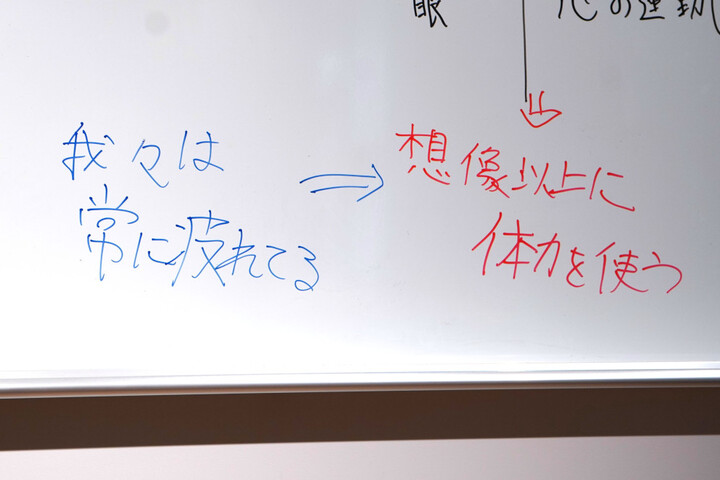 眼
心の運動
我々は
常に疲れてる
⇒
想像以上に
体力を使う